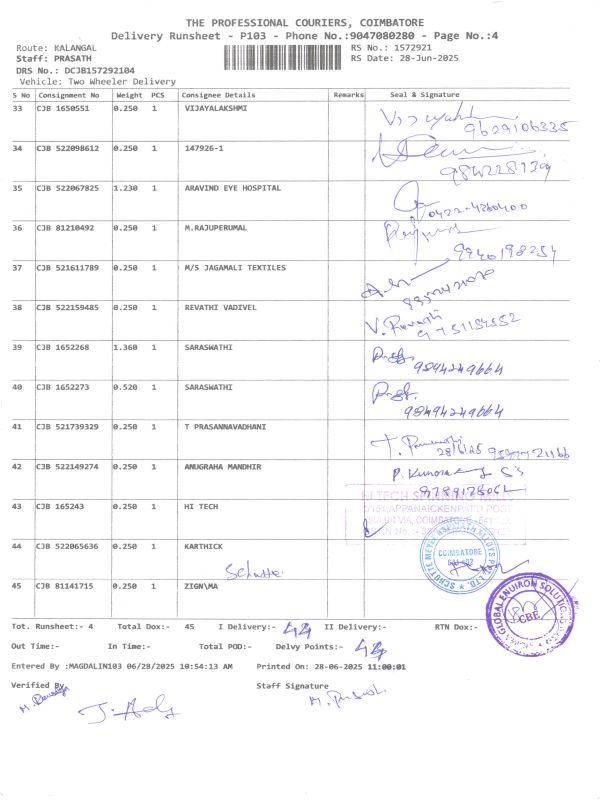 THE PROFESSIONAL COURIERS, COIMBATORE
Delivery Runsheet - P103 - Phone No.:9047080280 - Page No.:4
Route: KALANGAL RS No.: 1572921
Staff: PRASATH RS Date: 28-Jun-2025
DRS No.: DCJB157292104
Vehicle: Two Wheeler Delivery
S No Consignment No Weight PCS Consignee Details Remarks Seal & Signature
33 CJB 1650551 0.250 1 VIJAYALAKSHMI
9629106335
34 CJB 522098612 0.250 1 147926-1
35 CJB 522067825 1.230 1 ARAVIND EYE HOSPITAL
0422-4360400
36 CJB 81210492 0.250 1 M.RAJUPERUMAL
9940198254
37 CJB 521611789 0.250 1 M/S JAGAMALI TEXTILES
38 CJB 522159485 0.250 1 REVATHI VADIVEL
V. Revathi
39 CJB 1652268 1.360 1 SARASWATHI
9894249664
40 CJB 1652273 0.520 1 SARASWATHI
41 CJB 521739329 0.250 1 T PRASANNAVADHANI
28/6/25
42 CJB 522149274 0.250 1 ANUGRAHA MANDHIR
43 CJB 165243 0.250 1 HI TECH
HI TECH
COIMBATORE
44 CJB 522065636 0.250 1 KARTHICK
COIMBATORE
45 CJB 81141715 0.250 1 ZIGN\MA
GLOBAL ENVIRON SOLUTION
CBE
Tot. Runsheet:- 4 Total Dox:- 45 I Delivery:- 44 II Delivery:- RTN Dox:-
Out Time:- In Time:- Total POD:- Delvy Points:- 44
Entered By :MAGDALIN103 06/28/2025 10:54:13 AM Printed On: 28-06-2025 11:00:01
Verified By Staff Signature